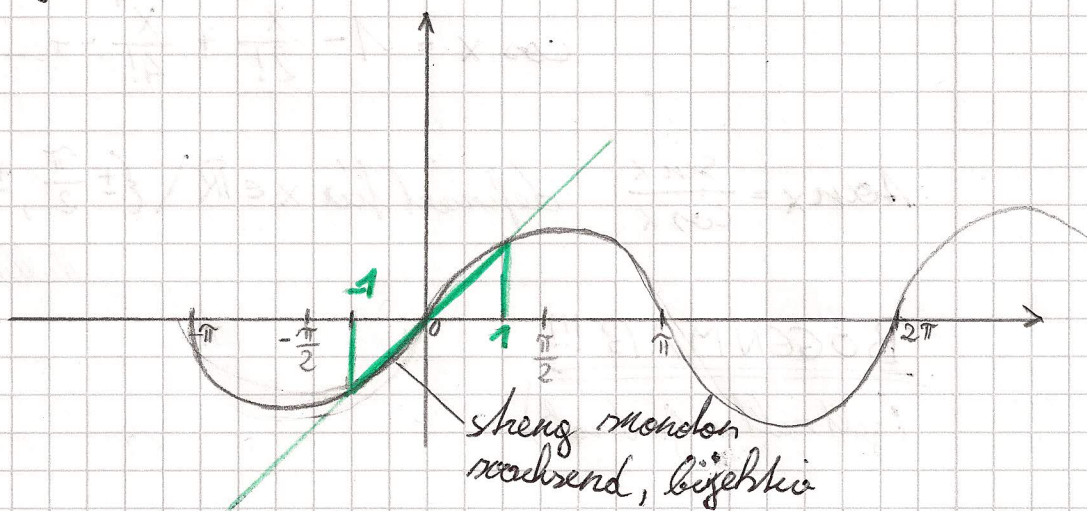 -1
-π
-π/2
0
1
π/2
π
2π
streng monoton
wachsend, bijektiv